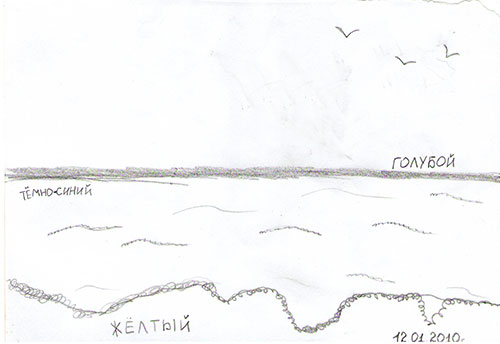 ГОЛУБОЙ
ТЁМНО-СИНИЙ
ЖЁЛТЫЙ
12.01.2010г.